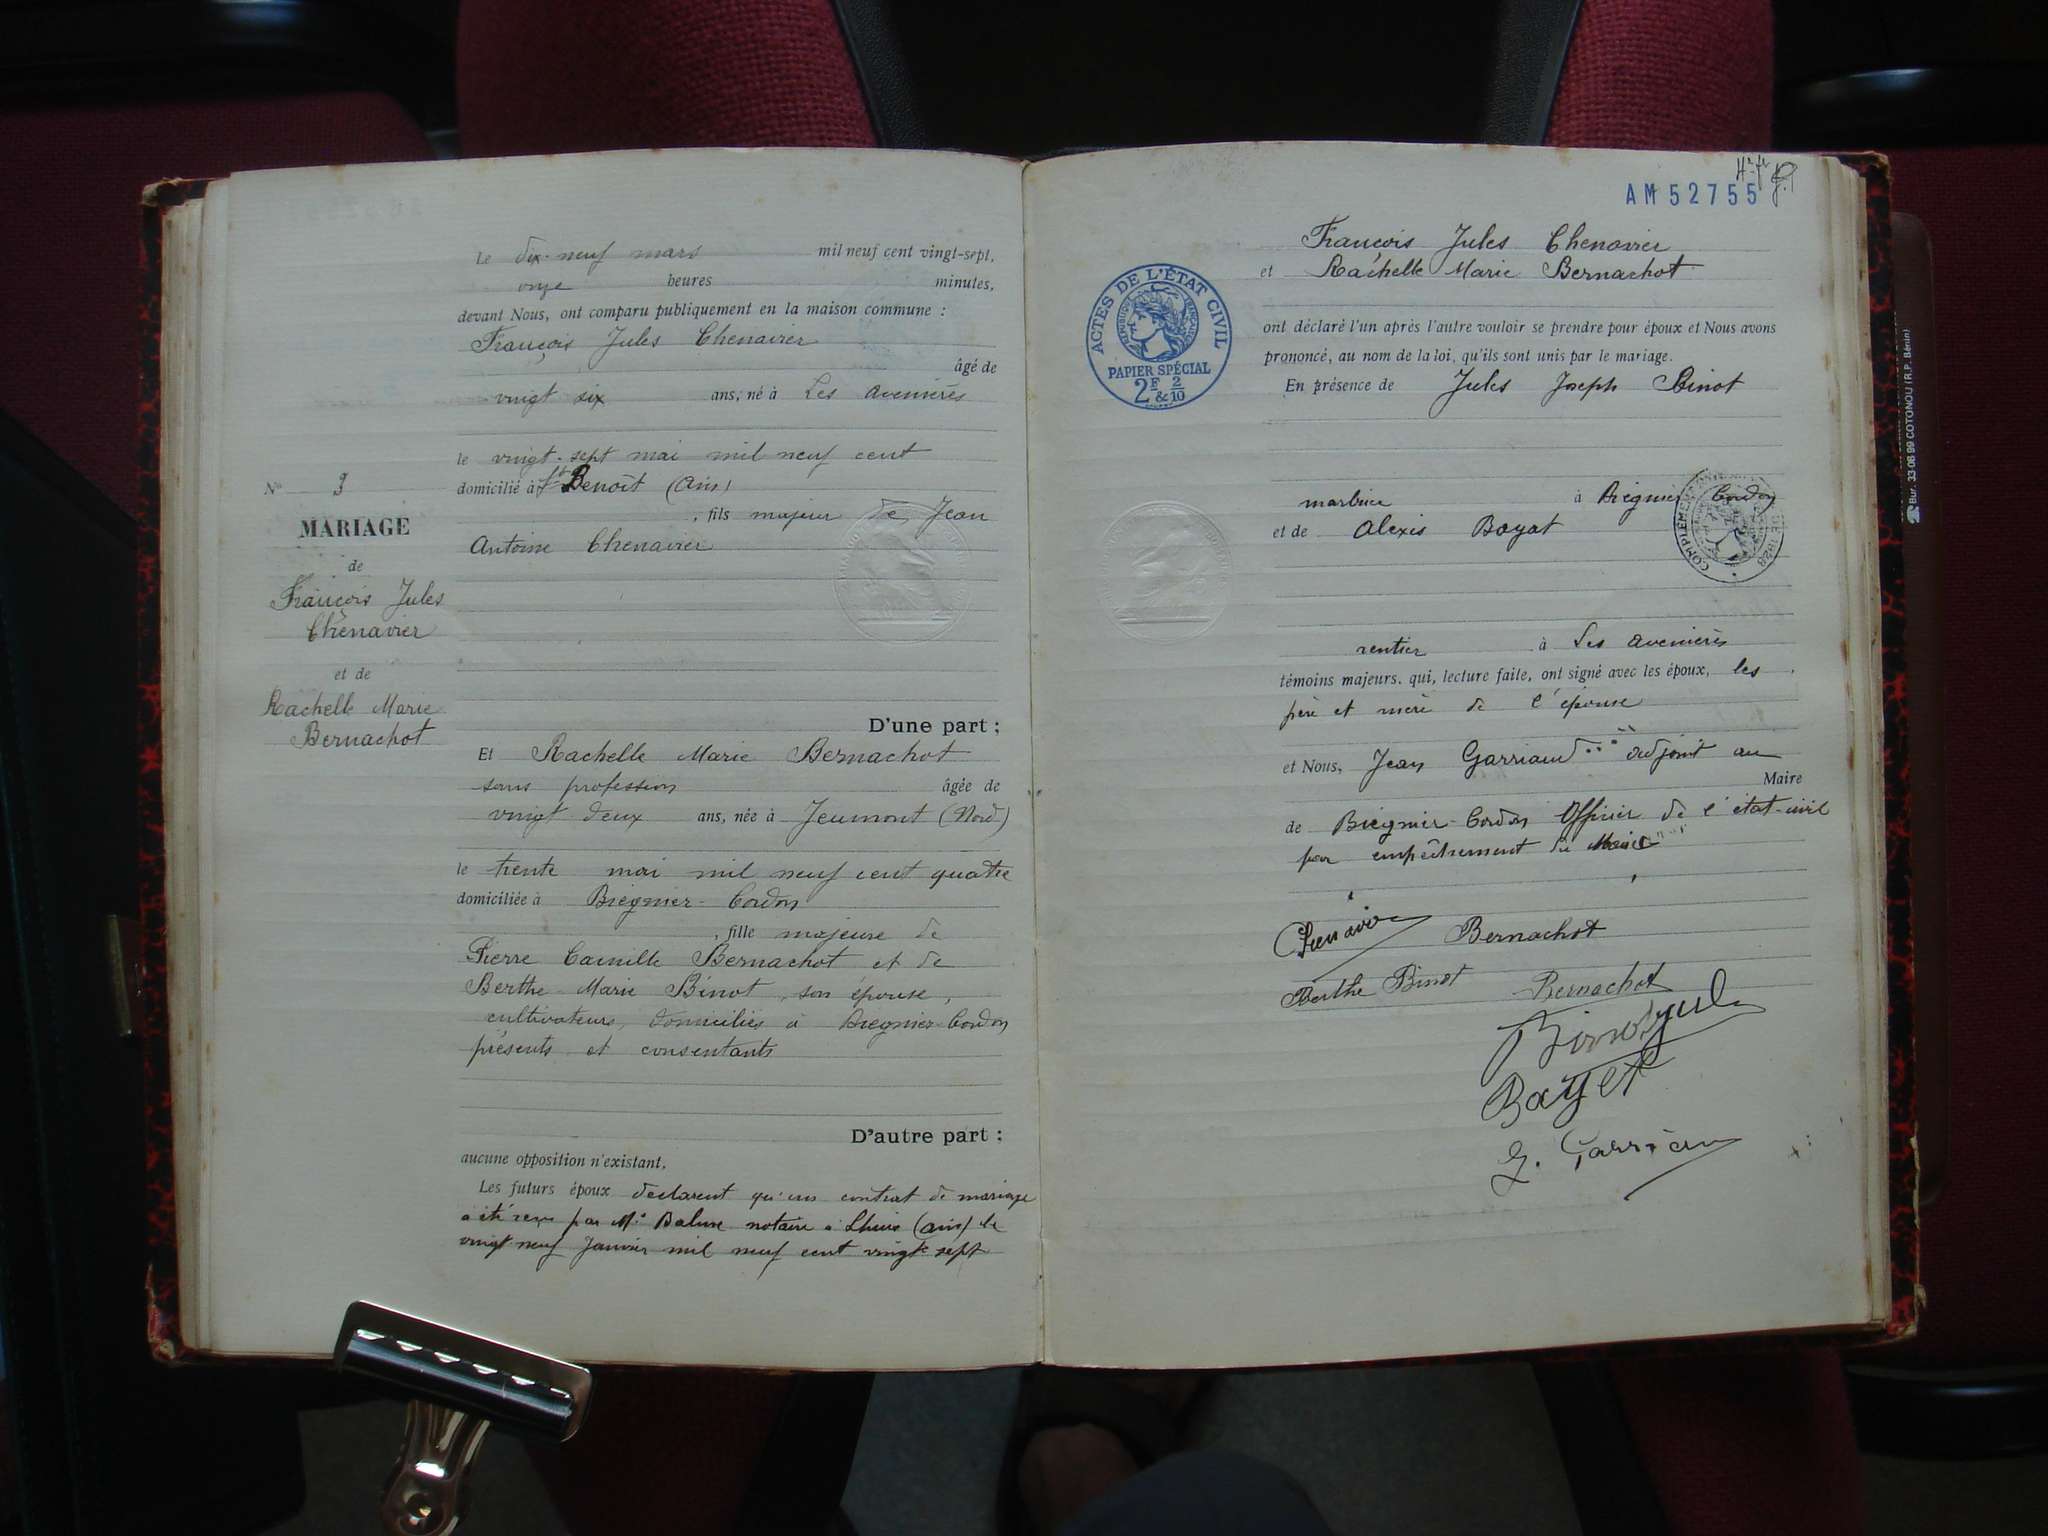 Le dix-neuf mars mil neuf cent vingt-sept,
onze heures minutes,
devant Nous, ont comparu publiquement en la maison commune :
François Jules Chenavier
âgé de
vingt six ans, né à Les avenières
le vingt-sept mai mil neuf cent
domicilié à St Benoit (Ain)
, fils majeur de Jean
Antoine Chenavier
D'une part ;
Et Rachelle Marie Bernachot
sans profession âgée de
vingt-deux ans, née à Jeumont (Nord)
le trente mai mil neuf cent quatre
domiciliée à Brégnier-Cordon
, fille majeure de
Pierre Camille Bernachot et de
Berthe Marie Binot, son épouse,
cultivateurs, domiciliés à Brégnier-Cordon
présents et consentants
D'autre part ;
aucune opposition n'existant,
Les futurs époux déclarent qu'un contrat de mariage
a été reçu par Me notaire à Lhuis (ain) le
vingt neuf Janvier mil neuf cent vingt sept
No 3
MARIAGE
de
François Jules
Chenavier
et de
Rachelle Marie
Bernachot
AM 52755
François Jules Chenavier
et Rachelle Marie Bernachot
ont déclaré l'un après l'autre vouloir se prendre pour époux et Nous avons
prononcé, au nom de la loi, qu'ils sont unis par le mariage.
En présence de Jules Joseph Binot
à Brégnier Cordon
et de Alexis Boyat
rentier à Les avenières
témoins majeurs, qui, lecture faite, ont signé avec les époux, les
père et mère de l'épouse
et Nous, Jean Garriaud adjoint au
Maire
de Brégnier-Cordon Officier de l'état-civil
par empêchement du Maire
Chenavier
Bernachot
Berthe Binot
Bernachot
Binot Jules
Boyat
J. Garriau
ACTES DE L'ÉTAT CIVIL
RÉPUBLIQUE FRANÇAISE
PAPIER SPÉCIAL
2F & 2/10
Bur. 33 08 99 COTONOU (R.P. Bénin)